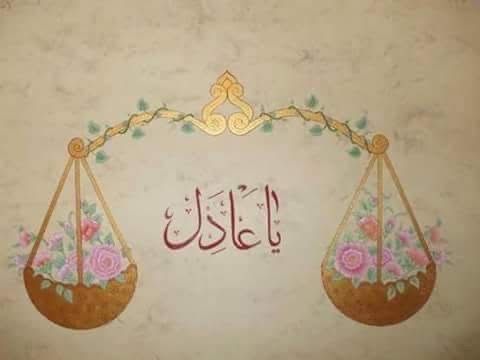 يا عَادِل